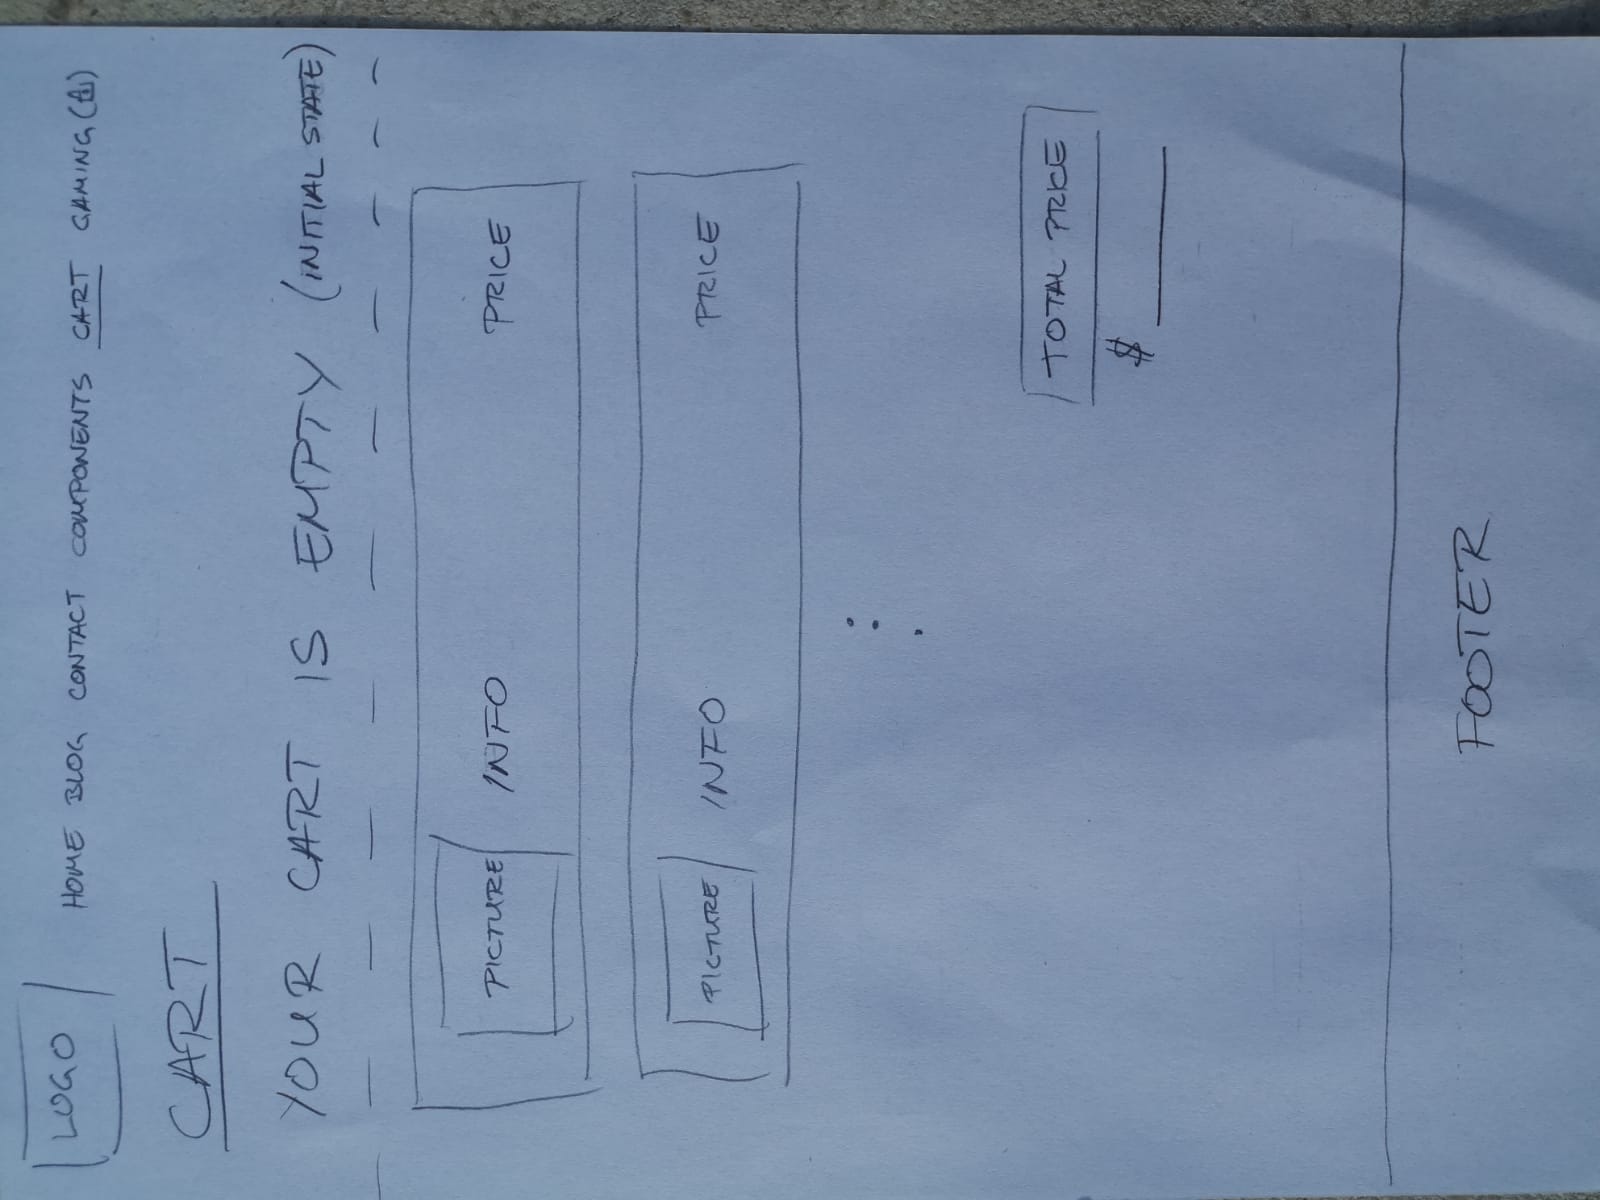 LOGO
HOME BLOG CONTACT COMPONENTS CART GAMING ( )
CART
YOUR CART IS EMPTY (INITIAL STATE)
PICTURE INFO PRICE
PICTURE INFO PRICE
TOTAL PRICE
$
FOOTER